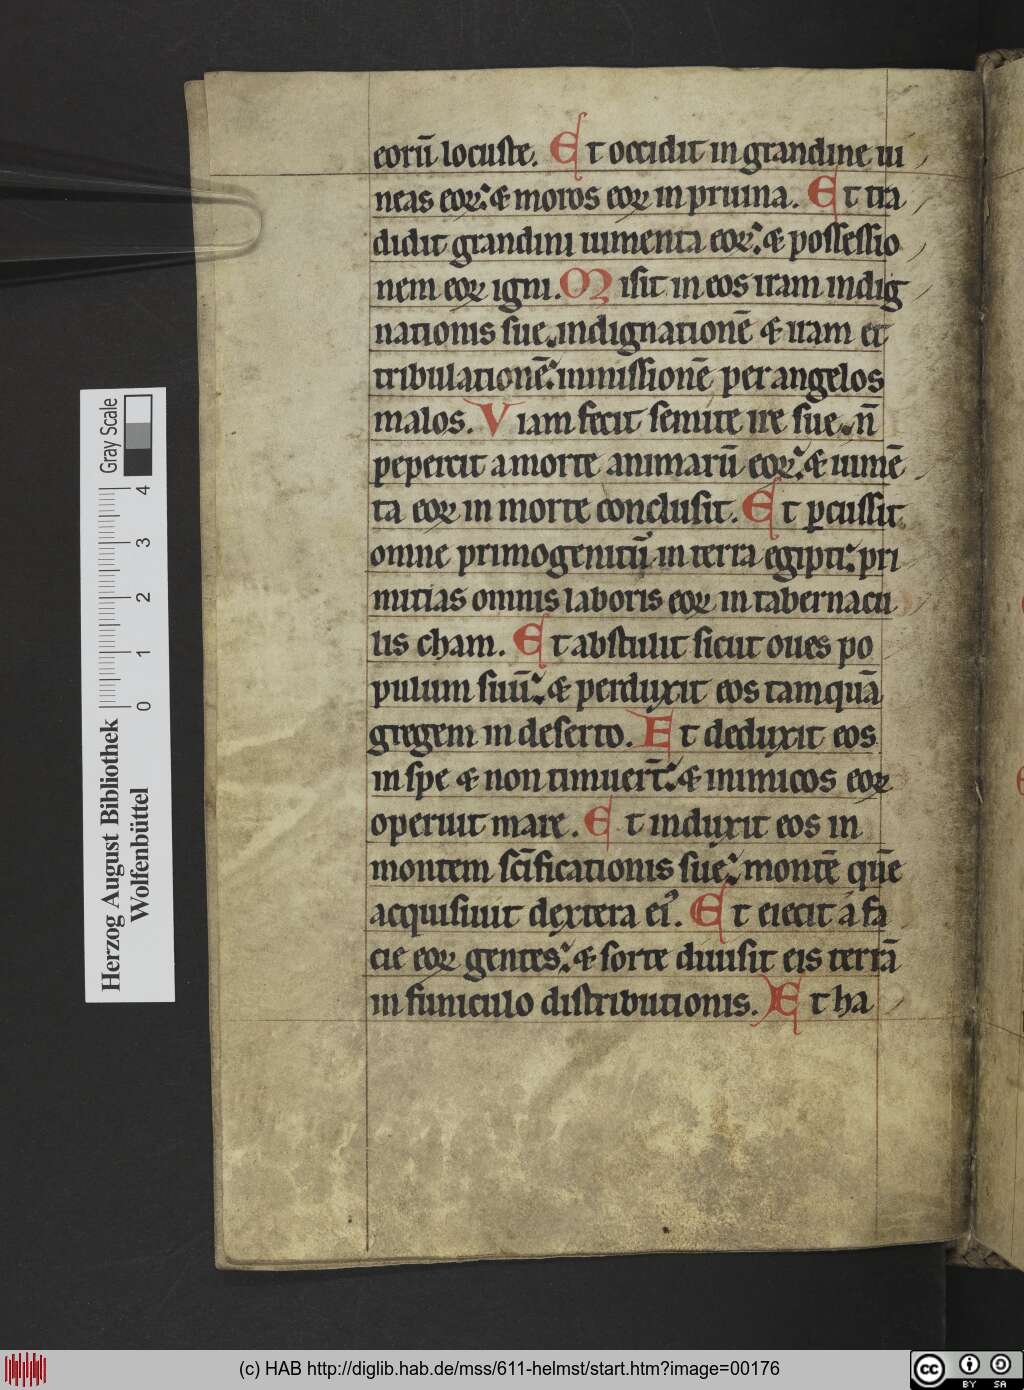 eorū locuste. Et occidit in grandine ui
neas eoꝝ: & moros eoꝝ in pruina. Et tra
didit grandini iumenta eoꝝ: & possessio
nem eoꝝ igni. Misit in eos iram indig
nationis sue. indignationē & iram et
tribulationē: inmissionē per angelos
malos. Viam fecit semite ire sue. n̄
pepercit a morte animarū eoꝝ: & iumē
ta eoꝝ in morte conclusit. Et ꝑcussit
omne primogenitū in terra egipti: pri
mitias omnis laboris eoꝝ in tabernacu
lis cham. Et abstulit sicut oues po
pulum suū: & perduxit eos tamquā
gregem in deserto. Et deduxit eos
in spe & non timuer̄t: & inimicos eoꝝ
operuit mare. Et induxit eos in
montem sc̄ificationis sue: montē quē
acquisiuit dextera ei᾽. Et eiecit a fa
cie eoꝝ gentes: & sorte diuisit eis terrā
in funiculo distributionis. Et ha
Herzog August Bibliothek
Wolfenbüttel
0 1 2 3 4
Gray Scale
(c) HAB http://diglib.hab.de/mss/611-helmst/start.htm?image=00176
cc BY SA